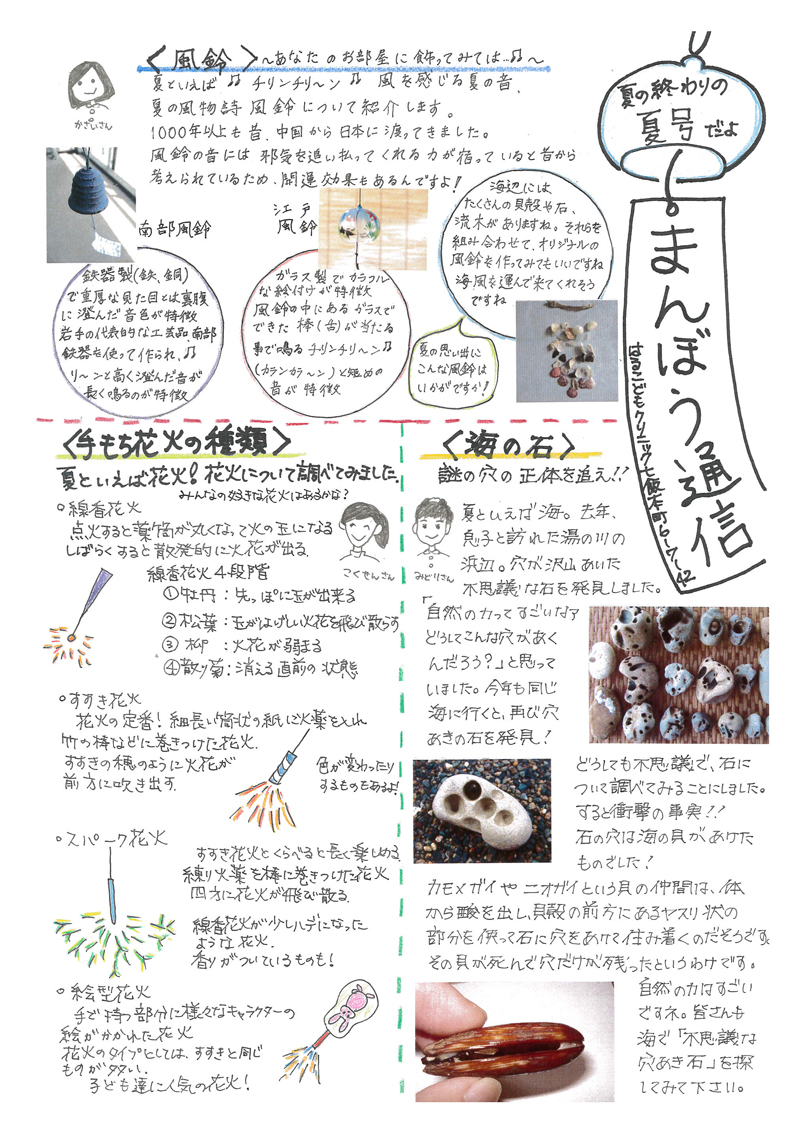 夏の終わりの
夏号だよ
まんぼう通信
はるこどもクリニック七飯本町6-1-42
〈風鈴〉～あなたのお部屋に飾ってみては…♫～
夏といえば♫チリンチリ～ン♫ 風を感じる夏の音、
夏の風物詩 風鈴について紹介します。
1000年以上も昔、中国から日本に渡ってきました。
風鈴の音には 邪気を追い払ってくれる力が宿っていると昔から
考えられているため、開運効果もあるんですよ!!
かさいさん
南部風鈴
鉄器製(鉄、銅)
で重厚な見た目とは裏腹
に澄んだ音色が特徴
岩手の代表的な工芸品、南部
鉄器を使って作られ、♫
リ～ンと高く澄んだ音が
長く鳴るのが特徴
江戸
風鈴
ガラス製でカラフル
な絵付けが特徴
風鈴の中にあるガラスで
できた棒(舌)が当たる
事で鳴るチリンチリ～ン♪
(カランカラ～ン)と短めの
音が特徴
海辺には
たくさんの貝殻や石、
流木がありますね。それらを
組み合わせて、オリジナルの
風鈴を作ってみてもいいですね
海風を運んで来てくれそう
ですね
夏の思い出に
こんな風鈴は
いかがですか!
〈手もち花火の種類〉
夏といえば花火!花火について調べてみました。
みんなの好きな花火はあるかな?
○線香花火
点火すると薬筒が丸くなって火の玉になる
しばらくすると散発的に火花が出る。
こくせんさん
線香花火4段階
①牡丹:先っぽに玉が出来る
②松葉:玉がはげしい火花を飛び散らす
③柳:火花が弱まる
④散り菊:消える直前の状態
○すすき花火
花火の定番!細長い筒状の紙に火薬を入れ
竹の棒などに巻きつけた花火。
すすきの穂のように火花が
前方に吹き出す。
色が変わったり
するものもあるよ!
○スパーク花火
すすき花火とくらべると長く楽しめる
練り火薬を棒に巻きつけた花火
四方に花火が飛び散る。
線香花火が少しハデになった
ような花火。
香りがついているものも!
○絵型花火
手で持つ部分に様々なキャラクターの
絵がかかれた花火
花火のタイプとしては、すすきと同じ
ものが多い。
子ども達に人気の花火!
〈海の石〉
謎の穴の正体を追え!!
みどりさん
夏といえば海。去年、
息子と訪れた湯の川の
浜辺。穴が沢山あいた
不思議な石を発見しました。
「自然の力ってすごいな?
どうしてこんな穴があく
んだろう?」と思って
いました。今年も同じ
海に行くと、再び穴
あきの石を発見!
どうしても不思議で、石に
ついて調べてみることにしました。
すると衝撃の事実!!
石の穴は海の貝があけた
ものでした!
カモメガイやニオガイという貝の仲間は、体
から酸を出し、貝殻の前方にあるヤスリ状の
部分を使って石に穴をあけて住み着くのだそうです。
その貝が死んで穴だけが残ったというわけです。
自然の力はすごい
ですネ。皆さんも
海で「不思議な
穴あき石」を探
してみて下さい。